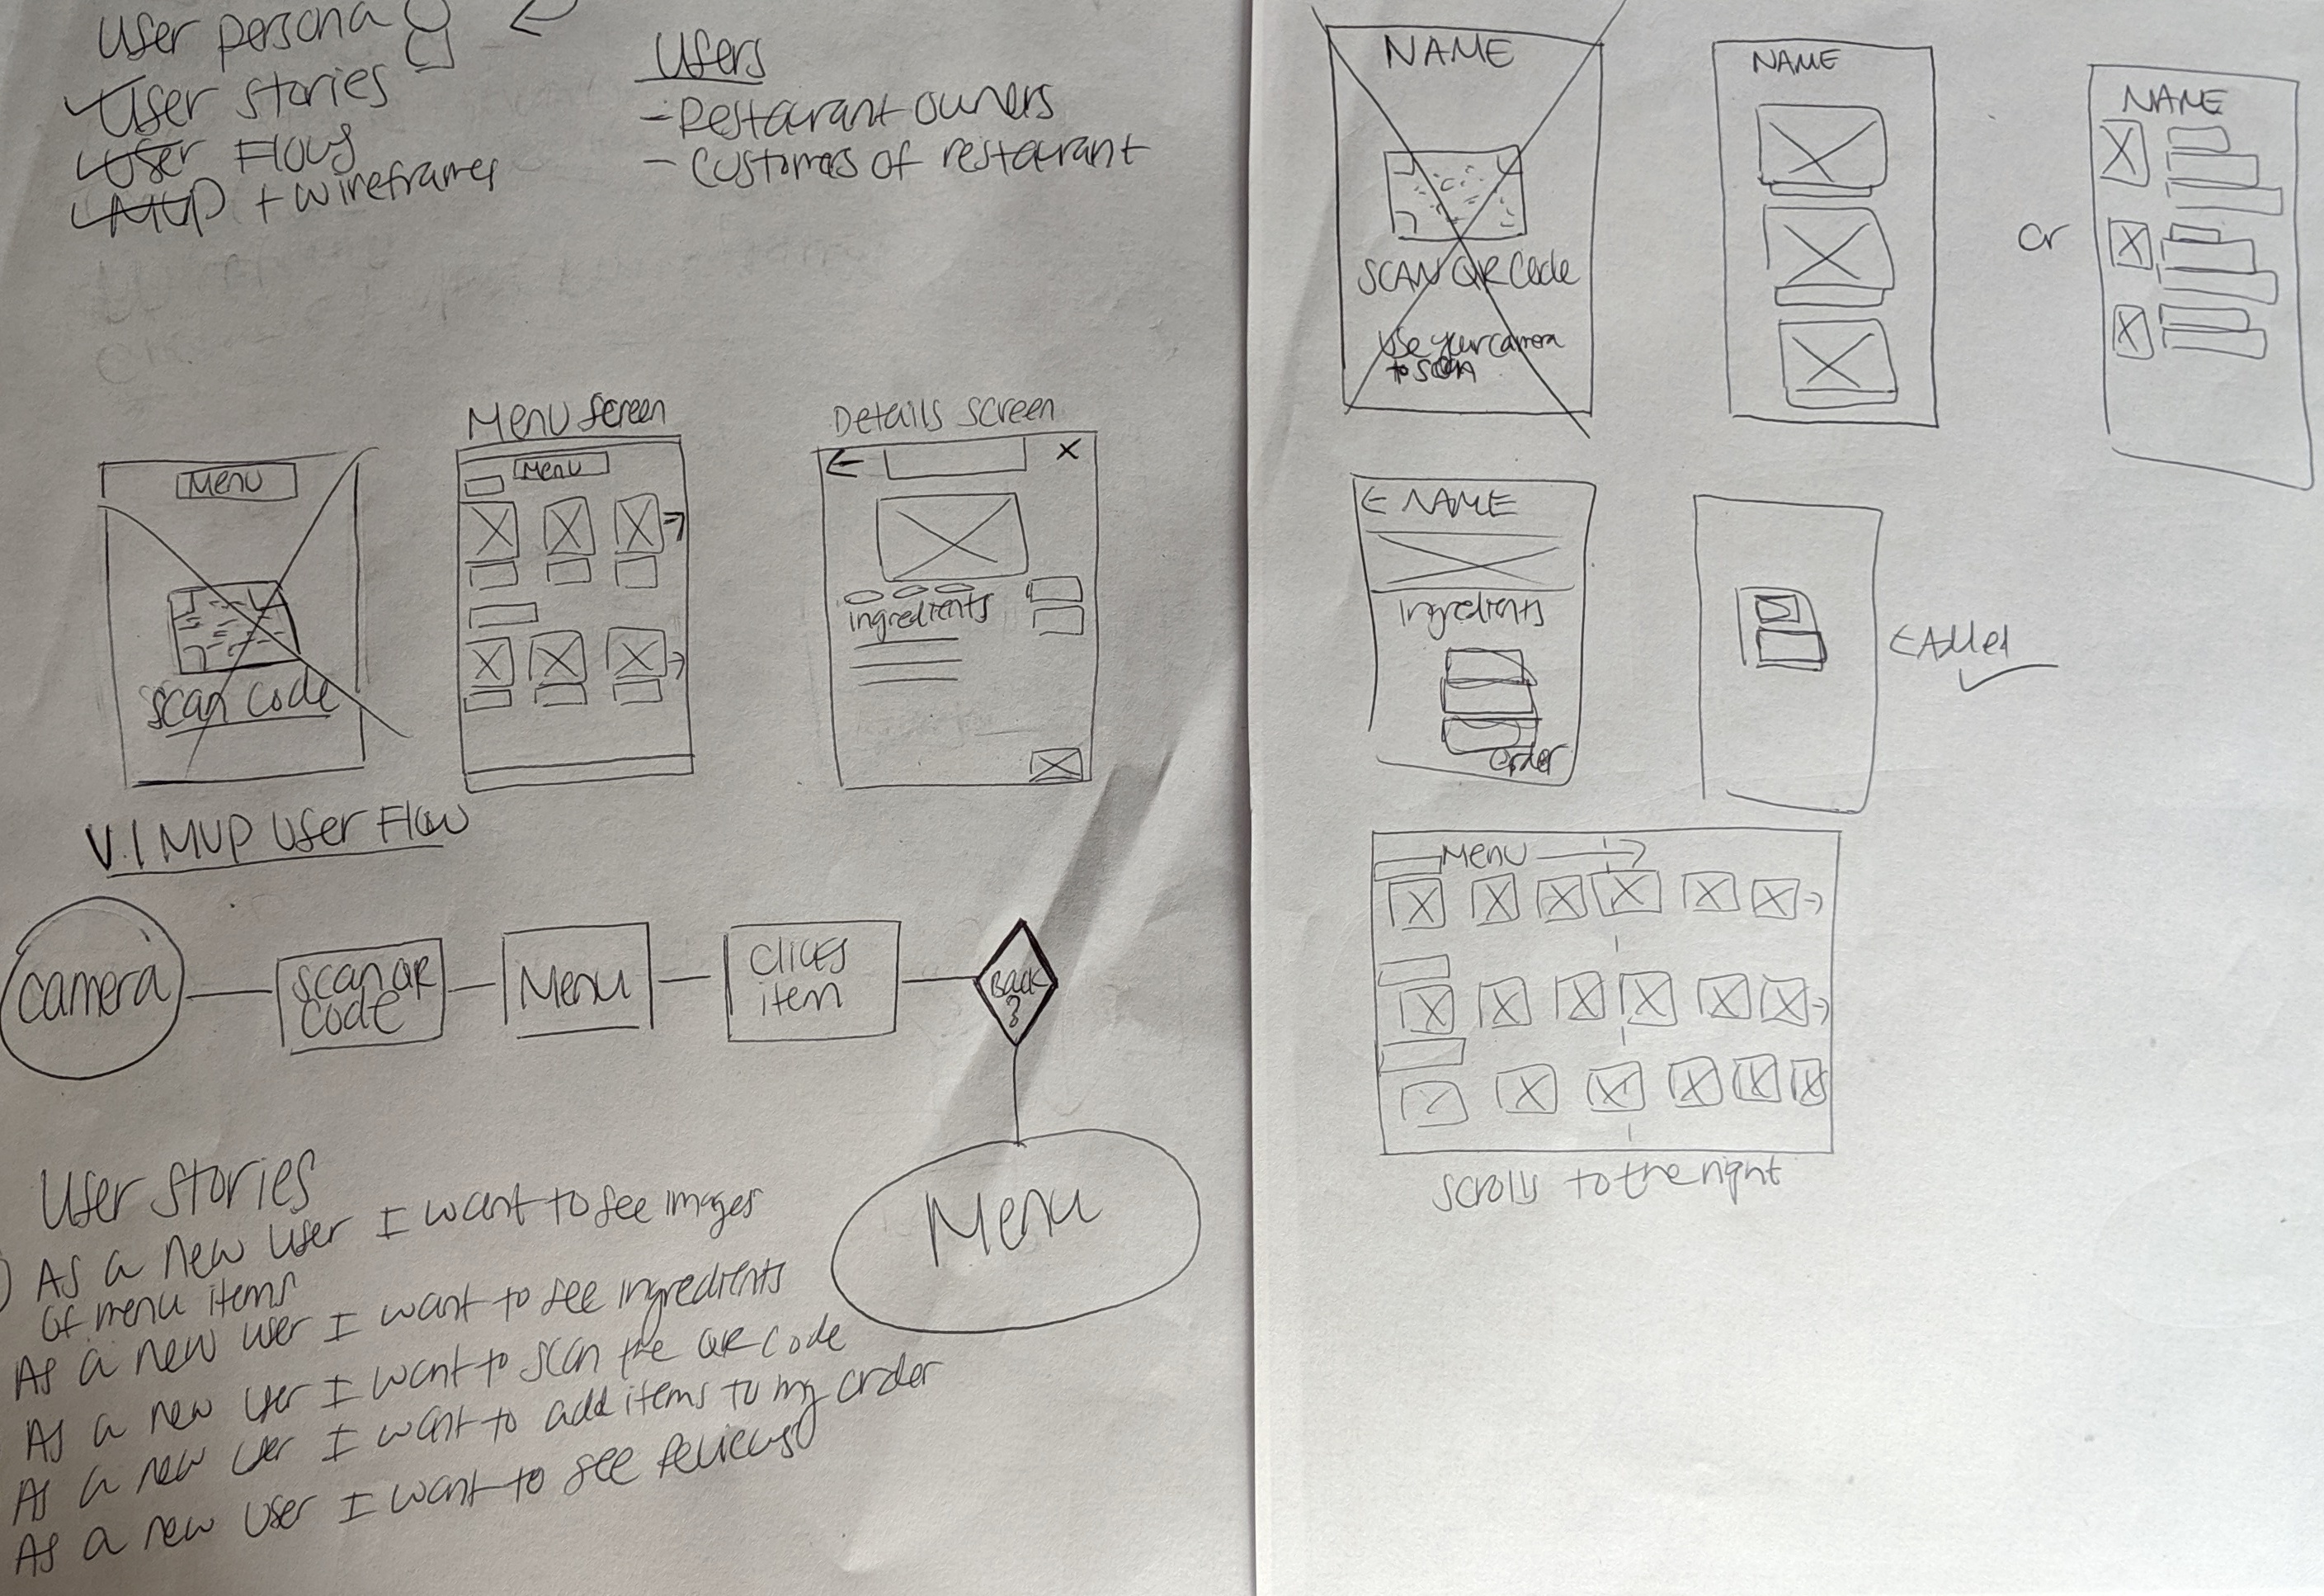 User persona
User stories
User Flow
MVP + wireframes
Users
- Restaurant owners
- Customers of restaurant
Menu
Scan Code
Menu Screen
Menu
Details Screen
X
Ingredients
V.1 MVP User Flow
camera
scan QR
code
Menu
clicks
item
Back
?
Menu
User Stories
As a new user I want to see images
of menu items
As a new user I want to see ingredients
As a new user I want to scan the QR code
As a new user I want to add items to my order
As a new user I want to see reviews
NAME
SCAN QR Code
Use your camera
to scan
NAME
or
NAME
NAME
Ingredients
order
Added
Menu
scrolls to the right